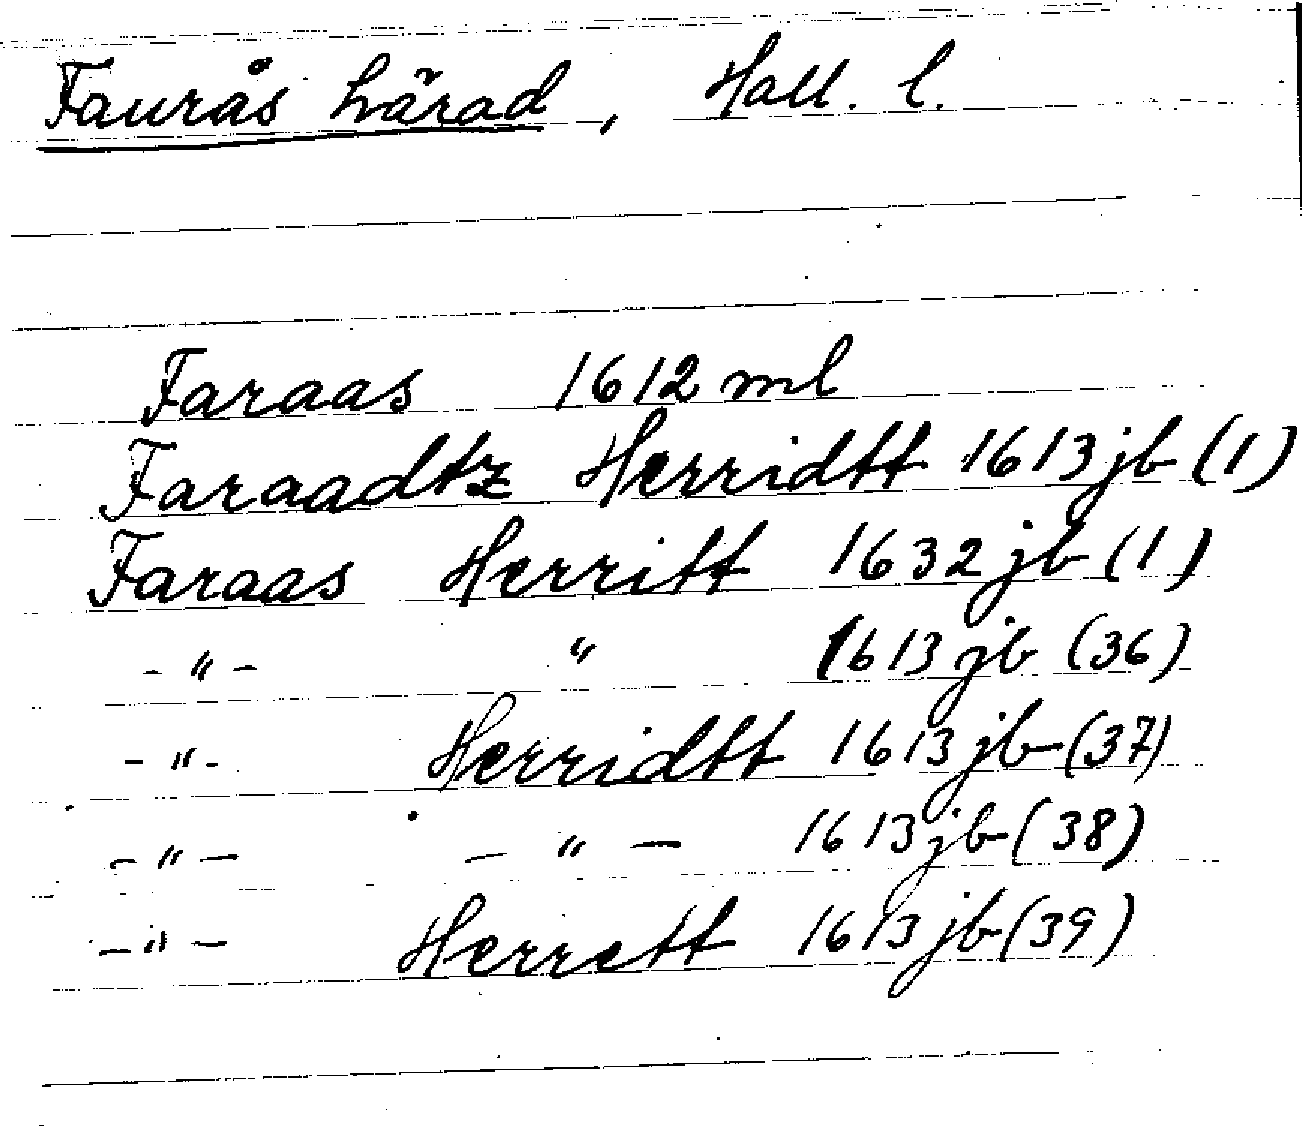 Faurås härad, Hall. l.
Faraas 1612 ml
Faraadtz Herridtt 1613 jb (1)
Faraas Herritt 1632 jb (1)
- " - " 1613 jb (36)
- " - Herridtt 1613 jb (37)
- " - - " - 1613 jb (38)
- " - Herrett 1613 jb (39)